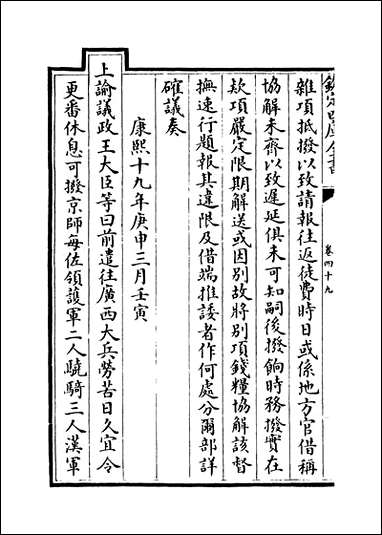 欽定四庫全書
卷四十九
雜項抵撥以致請報往返徒費時日或係地方官借稱
協解未齊以致遲延俱未可知嗣後撥餉時務撥實在
欵項嚴定限期解送或因別故將別項錢糧協解該督
撫速行題報其違限及借端推諉者作何處分爾部詳
確議奏
康熙十九年庚申三月壬寅
上諭議政王大臣等曰前遣往廣西大兵勞苦日久宜令
更番休息可撥京師每佐領護軍二人驍騎三人漢軍